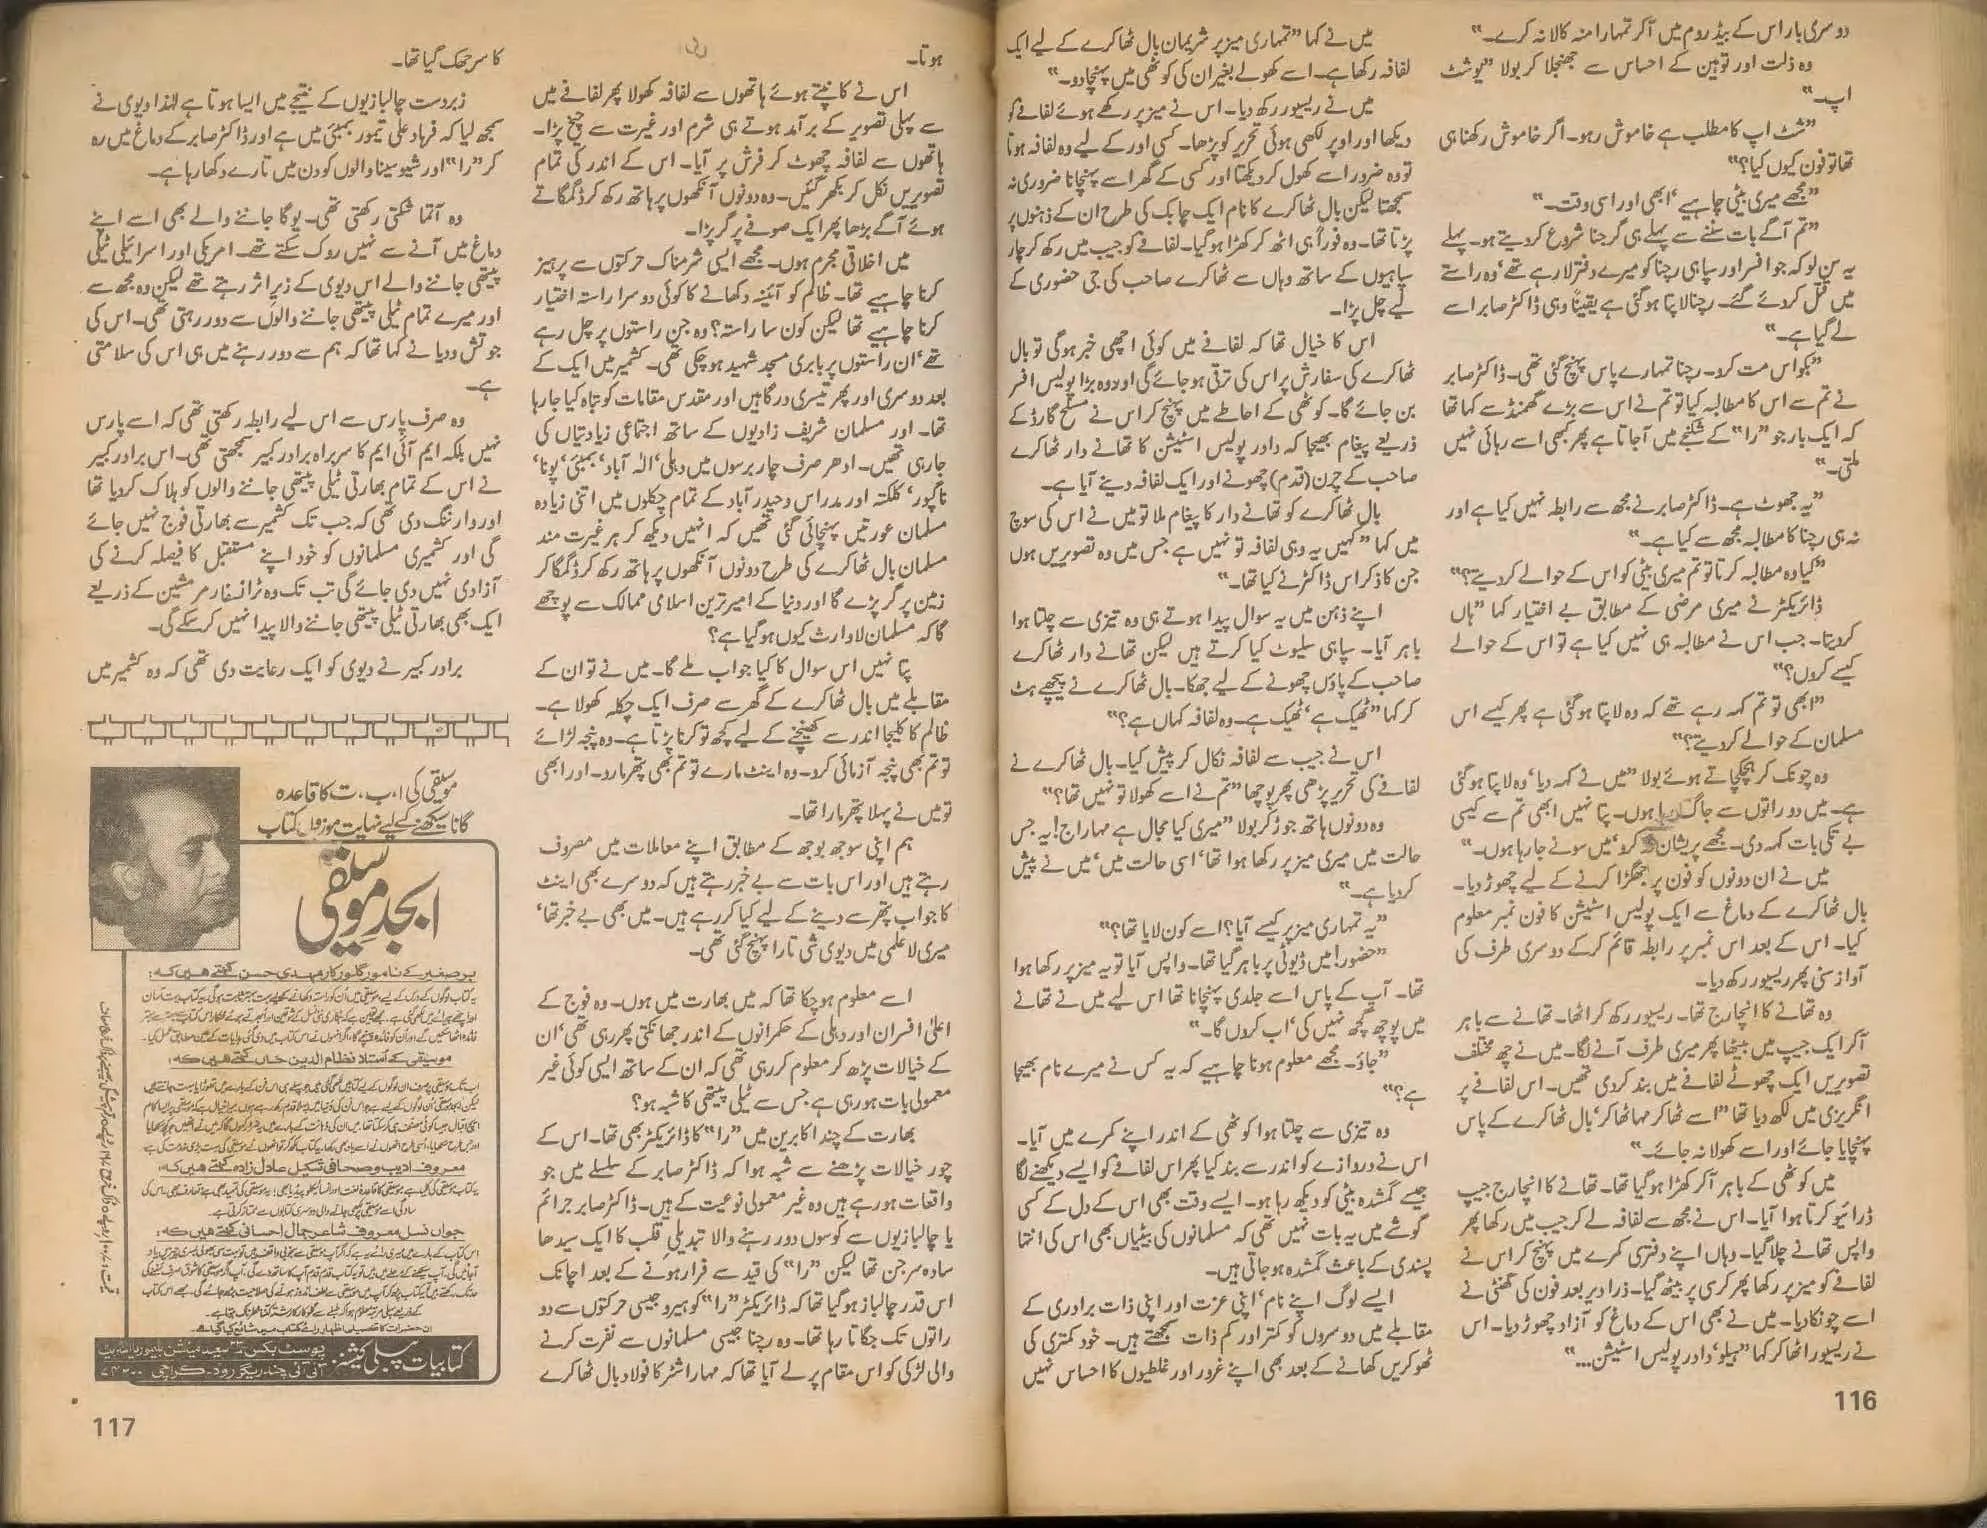 دوسری بار اس کے بیڈ روم میں آکر تمہارا منہ کالا نہ کرے۔"
وہ ذلت اور توہین کے احساس سے جھنجلا کر بولا "یو شٹ
اپ۔"
"شٹ اپ کا مطلب ہے خاموش رہو۔ اگر خاموش رکھنا ہی
تھا تو فون کیوں کیا؟"
"مجھے میری بیٹی چاہیے' ابھی اور اسی وقت۔"
"تم آگے بات سننے سے پہلے ہی گرجنا شروع کردیتے ہو۔ پہلے
یہ سن لو کہ جو افسر اور سپاہی رچنا کو میرے دفتر لا رہے تھے' وہ راستے
میں قتل کردئے گئے۔ رچنا لاپتا ہوگئی ہے یقیناً وہی ڈاکٹر صابر اسے
لے گیا ہے۔"
"بکواس مت کرو۔ رچنا تمہارے پاس پہنچ گئی تھی۔ ڈاکٹر صابر
نے تم سے اس کا مطالبہ کیا تو تم نے اس سے بڑے گھمنڈ سے کہا تھا
کہ ایک بار جو "را" کے شکنجے میں آجاتا ہے پھر کبھی اسے رہائی نہیں
ملتی۔"
"یہ جھوٹ ہے۔ ڈاکٹر صابر نے مجھ سے رابطہ نہیں کیا ہے اور
نہ ہی رچنا کا مطالبہ مجھ سے کیا ہے۔"
"کیا وہ مطالبہ کرتا تو تم میری بیٹی کو اس کے حوالے کردیتے؟"
ڈائریکٹر نے میری مرضی کے مطابق بے اختیار کہا "ہاں
کردیتا۔ جب اس نے مطالبہ ہی نہیں کیا ہے تو اس کے حوالے
کیسے کروں؟"
"ابھی تو تم کہہ رہے تھے کہ وہ لاپتا ہوگئی ہے پھر کیسے اس
مسلمان کے حوالے کردیتے؟"
وہ چونک کر ہچکچاتے ہوئے بولا "میں نے کہہ دیا' وہ لاپتا ہوگئی
ہے۔ میں دو راتوں سے جاگ رہا ہوں۔ پتا نہیں ابھی تم سے کیسی
بے تکی بات کہہ دی۔ مجھے پریشان نہ کرو' میں سونے جارہا ہوں۔"
میں نے ان دونوں کو فون پر جھگڑا کرنے کے لیے چھوڑ دیا۔
بال ٹھاکرے کے دماغ سے ایک پولیس اسٹیشن کا فون نمبر معلوم
کیا۔ اس کے بعد اس نمبر پر رابطہ قائم کرکے دوسری طرف کی
آواز سنی پھر ریسیور رکھ دیا۔
وہ تھانے کا انچارج تھا۔ ریسیور رکھ کر اٹھا۔ تھانے سے باہر
آکر ایک جیپ میں بیٹھا پھر میری طرف آنے لگا۔ میں نے چھ مختلف
تصویریں ایک چھوٹے لفافے میں بند کردی تھیں۔ اس لفافے پر
انگریزی میں لکھ دیا تھا "اسے ٹھاکر مہا ٹھاکر' بال ٹھاکرے کے پاس
پہنچایا جائے اور اسے کھولا نہ جائے۔"
میں کوٹھی کے باہر آکر کھڑا ہوگیا تھا۔ تھانے کا انچارج جیپ
ڈرائیو کرتا ہوا آیا۔ اس نے مجھ سے لفافہ لے کر جیب میں رکھا پھر
واپس تھانے چلا گیا۔ وہاں اپنے دفتری کمرے میں پہنچ کر اس نے
لفافے کو میز پر رکھا پھر کرسی پر بیٹھ گیا۔ ذرا دیر بعد فون کی گھنٹی نے
اسے چونکا دیا۔ میں نے بھی اس کے دماغ کو آزاد چھوڑ دیا۔ اس
نے ریسیور اٹھا کر کہا "ہیلو' دادر پولیس اسٹیشن..."
116
میں نے کہا "تمہاری میز پر شریمان بال ٹھاکرے کے لیے ایک
لفافہ رکھا ہے۔ اسے کھولے بغیر ان کی کوٹھی میں پہنچا دو۔"
میں نے ریسیور رکھ دیا۔ اس نے میز پر رکھے ہوئے لفافے کو
دیکھا اور اوپر لکھی ہوئی تحریر کو پڑھا۔ کسی اور کے لیے وہ لفافہ ہوتا
تو وہ ضرور اسے کھول کر دیکھتا اور کسی کے گھر اسے پہنچانا ضروری نہ
سمجھتا لیکن بال ٹھاکرے کا نام ایک چابک کی طرح ان کے ذہنوں پر
پڑتا تھا۔ وہ فوراً ہی اٹھ کر کھڑا ہوگیا۔ لفافے کو جیب میں رکھ کر چار
سپاہیوں کے ساتھ وہاں سے ٹھاکرے صاحب کی جی حضوری کے
لیے چل پڑا۔
اس کا خیال تھا کہ لفافے میں کوئی اچھی خبر ہوگی تو بال
ٹھاکرے کی سفارش پر اس کی ترقی ہوجائے گی اور وہ بڑا پولیس افسر
بن جائے گا۔ کوٹھی کے احاطے میں پہنچ کر اس نے مسلح گارڈ کے
ذریعے پیغام بھیجا کہ دادر پولیس اسٹیشن کا تھانے دار ٹھاکرے
صاحب کے چرن (قدم) چھونے اور ایک لفافہ دینے آیا ہے۔
بال ٹھاکرے کو تھانے دار کا پیغام ملا تو میں نے اس کی سوچ
میں کہا "کہیں یہ وہی لفافہ تو نہیں ہے جس میں وہ تصویریں ہوں
جن کا ذکر اس ڈاکٹر نے کیا تھا۔"
اپنے ذہن میں یہ سوال پیدا ہوتے ہی وہ تیزی سے چلتا ہوا
باہر آیا۔ سپاہی سلیوٹ کیا کرتے ہیں لیکن تھانے دار ٹھاکرے
صاحب کے پاؤں چھونے کے لیے جھکا۔ بال ٹھاکرے نے پیچھے ہٹ
کر کہا "ٹھیک ہے' ٹھیک ہے۔ وہ لفافہ کہاں ہے؟"
اس نے جیب سے لفافہ نکال کر پیش کیا۔ بال ٹھاکرے نے
لفافے کی تحریر پڑھی پھر پوچھا "تم نے اسے کھولا تو نہیں تھا؟"
وہ دونوں ہاتھ جوڑ کر بولا "میری کیا مجال ہے مہاراج! یہ جس
حالت میں میری میز پر رکھا ہوا تھا' اسی حالت میں' میں نے پیش
کردیا ہے۔"
"یہ تمہاری میز پر کیسے آیا؟ اسے کون لایا تھا؟"
"حضور! میں ڈیوٹی پر باہر گیا تھا۔ واپس آیا تو یہ میز پر رکھا ہوا
تھا۔ آپ کے پاس اسے جلدی پہنچانا تھا اس لیے میں نے تھانے
میں پوچھ گچھ نہیں کی' اب کروں گا۔"
"جاؤ۔ مجھے معلوم ہونا چاہیے کہ یہ کس نے میرے نام بھیجا
ہے؟"
وہ تیزی سے چلتا ہوا کوٹھی کے اندر اپنے کمرے میں آیا۔
اس نے دروازے کو اندر سے بند کیا پھر اس لفافے کو ایسے دیکھنے لگا
جیسے گمشدہ بیٹی کو دیکھ رہا ہو۔ ایسے وقت بھی اس کے دل کے کسی
گوشے میں یہ بات نہیں تھی کہ مسلمانوں کی بیٹیاں بھی اس کی انتہا
پسندی کے باعث گمشدہ ہوجاتی ہیں۔
ایسے لوگ اپنے نام' اپنی عزت اور اپنی ذات برادری کے
مقابلے میں دوسروں کو کمتر اور کم ذات سمجھتے ہیں۔ خود کمتری کی
ٹھوکریں کھانے کے بعد بھی اپنے غرور اور غلطیوں کا احساس نہیں
ہوتا۔
اس نے کانپتے ہوئے ہاتھوں سے لفافہ کھولا پھر لفافے میں
سے پہلی تصویر کے برآمد ہوتے ہی شرم اور غیرت سے چیخ پڑا۔
ہاتھوں سے لفافہ چھوٹ کر فرش پر آیا۔ اس کے اندر کی تمام
تصویریں نکل کر بکھر گئیں۔ وہ دونوں آنکھوں پر ہاتھ رکھ کر ڈگمگاتے
ہوئے آگے بڑھا پھر ایک صوفے پر گر پڑا۔
میں اخلاقی مجرم ہوں۔ مجھے ایسی شرمناک حرکتوں سے پرہیز
کرنا چاہیے تھا۔ ظالم کو آئینہ دکھانے کا کوئی دوسرا راستہ اختیار
کرنا چاہیے تھا لیکن کون سا راستہ؟ وہ جن راستوں پر چل رہے
تھے' ان راستوں پر بابری مسجد شہید ہوچکی تھی۔ کشمیر میں ایک کے
بعد دوسری اور پھر تیسری درگاہیں اور مقدس مقامات کو تباہ کیا جارہا
تھا۔ اور مسلمان شریف زادیوں کے ساتھ اجتماعی زیادتیاں کی
جارہی تھیں۔ ادھر صرف چار برسوں میں دہلی' الٰہ آباد' بمبئی' پونا'
ناگپور' کلکتہ اور مدراس و حیدر آباد کے تمام چکلوں میں اتنی زیادہ
مسلمان عورتیں پہنچائی گئی تھیں کہ انہیں دیکھ کر ہر غیرت مند
مسلمان بال ٹھاکرے کی طرح دونوں آنکھوں پر ہاتھ رکھ کر ڈگمگا کر
زمین پر گر پڑے گا اور دنیا کے امیر ترین اسلامی ممالک سے پوچھے
گا کہ مسلمان لاوارث کیوں ہوگیا ہے؟
پتا نہیں اس سوال کا کیا جواب ملے گا۔ میں نے تو ان کے
مقابلے میں بال ٹھاکرے کے گھر سے صرف ایک چکلہ کھولا ہے۔
ظالم کا کلیجا اندر سے کھینچنے کے لیے کچھ تو کرنا پڑتا ہے۔ وہ پنجہ لڑائے
تو تم بھی پنجہ آزمائی کرو۔ وہ اینٹ مارے تو تم بھی پتھر مارو۔ اور ابھی
تو میں نے پہلا پتھر مارا تھا۔
ہم اپنی سوجھ بوجھ کے مطابق اپنے معاملات میں مصروف
رہتے ہیں اور اس بات سے بے خبر رہتے ہیں کہ دوسرے بھی اینٹ
کا جواب پتھر سے دینے کے لیے کیا کر رہے ہیں۔ میں بھی بے خبر تھا'
میری لاعلمی میں دیوی شی تارا پہنچ گئی تھی۔
اسے معلوم ہوچکا تھا کہ میں بھارت میں ہوں۔ وہ فوج کے
اعلیٰ افسران اور دہلی کے حکمرانوں کے اندر جھانکتی پھر رہی تھی' ان
کے خیالات پڑھ کر معلوم کررہی تھی کہ ان کے ساتھ ایسی کوئی غیر
معمولی بات ہو رہی ہے جس سے ٹیلی پیتھی کا شبہ ہو؟
بھارت کے چند اکابرین میں "را" کا ڈائریکٹر بھی تھا۔ اس کے
چور خیالات پڑھنے سے شبہ ہوا کہ ڈاکٹر صابر کے سلسلے میں جو
واقعات ہورہے ہیں وہ غیر معمولی نوعیت کے ہیں۔ ڈاکٹر صابر جرائم
یا چالبازیوں سے کوسوں دور رہنے والا تبدیلی قلب کا ایک سیدھا
سادہ سرجن تھا لیکن "را" کی قید سے فرار ہونے کے بعد اچانک
اس قدر چالباز ہوگیا تھا کہ ڈائریکٹر "را" کو ہیرو جیسی حرکتوں سے دو
راتوں تک جگاتا رہا تھا۔ وہ رچنا جیسی مسلمانوں سے نفرت کرنے
والی لڑکی کو اس مقام پر لے آیا تھا کہ مہاراشٹر کا فولاد بال ٹھاکرے
کا سر جھک گیا تھا۔
زبردست چالبازیوں کے نتیجے میں ایسا ہوتا ہے لہٰذا دیوی نے
سمجھ لیا کہ فرہاد علی تیمور بمبئی میں ہے اور ڈاکٹر صابر کے دماغ میں رہ
کر "را" اور شیوسینا والوں کو دن میں تارے دکھا رہا ہے۔
وہ آتما شکتی رکھتی تھی۔ یوگا جاننے والے بھی اسے اپنے
دماغ میں آنے سے نہیں روک سکتے تھے۔ امریکی اور اسرائیلی ٹیلی
پیتھی جاننے والے اس دیوی کے زیر اثر رہتے تھے لیکن وہ مجھ سے
اور میرے تمام ٹیلی پیتھی جاننے والوں سے دور رہتی تھی۔ اس کی
جوتش ودیا نے کہا تھا کہ ہم سے دور رہنے میں ہی اس کی سلامتی
ہے۔
وہ صرف پارس سے اس لیے رابطہ رکھتی تھی کہ اسے پارس
نہیں بلکہ ایم آئی ایم کا سربراہ برادر کبیر سمجھتی تھی۔ اس برادر کبیر
نے اس کے تمام بھارتی ٹیلی پیتھی جاننے والوں کو ہلاک کردیا تھا
اور وارننگ دی تھی کہ جب تک کشمیر سے بھارتی فوج نہیں جائے
گی اور کشمیری مسلمانوں کو خود اپنے مستقبل کا فیصلہ کرنے کی
آزادی نہیں دی جائے گی تب تک وہ ٹرانسفارمر مشین کے ذریعے
ایک بھی بھارتی ٹیلی پیتھی جاننے والا پیدا نہیں کرسکے گی۔
برادر کبیر نے دیوی کو ایک رعایت دی تھی کہ وہ کشمیر میں
موسیقی کی ا، ب، ت کا قاعدہ
گانا سیکھنے کے لیے نہایت موزوں کتاب
ابجد موسیقی
برصغیر کے نامور گلوکار مہدی حسن کہتے ہیں کہ:
موسیقی کے استاد نظام الدین خاں کہتے ہیں کہ:
معروف ادیب و صحافی شکیل عادل زادہ کہتے ہیں کہ:
جواں نسل معروف شاعر جمال احسانی کہتے ہیں کہ:
کتابیات پبلی کیشنز
آئی آئی چندریگر روڈ۔ کراچی ۷۴۲۰۰
117